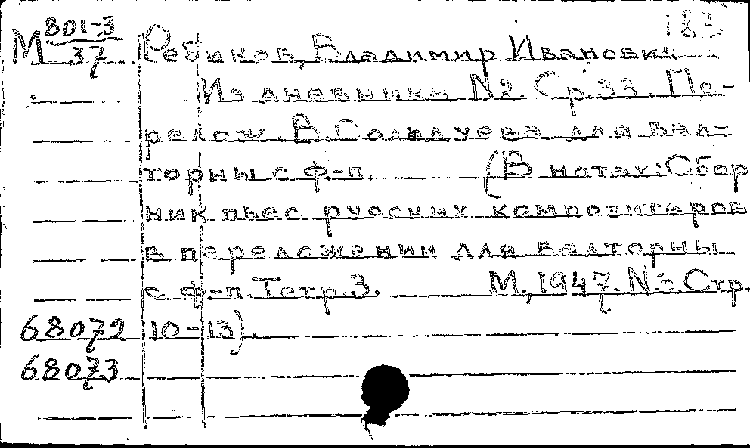 183
М 801-3/37 Ребиков, Владимир Иванович
Из дневника №2. Ср. 33. Пе-
релож. В. Солодуева для вал-
торны с ф-п. (В нотах: Сбор
ник пьес русских композиторов
в переложении для валторны
с ф-п. Тетр. 3. М., 1947. № Стр.
68072 10-13).
68073